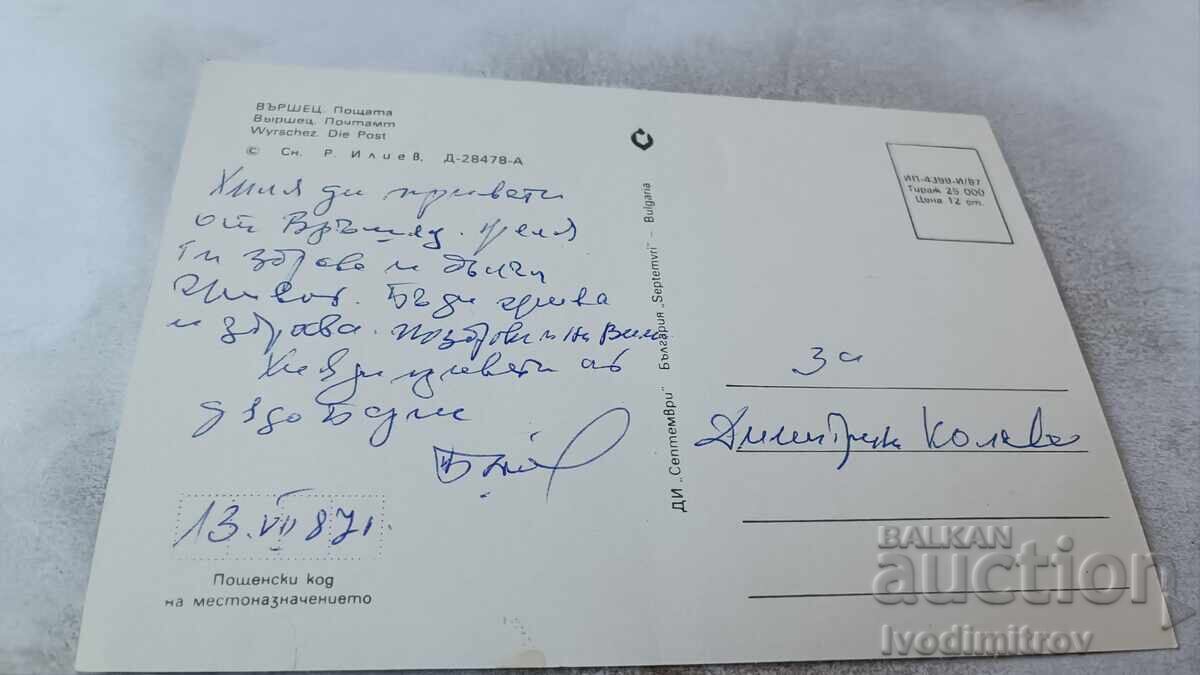 ВЪРШЕЦ. Пощата
Выршец. Почтамт
Wyrschez. Die Post
© Сн. Р. Илиев, Д-28478-А
Хиляди привети
от Връшец. Желая
Ти здраве и дълъг
живот. Бъди жива
и здрава. поздрови на
Хиляди цветя от
дядо
13.VII 87г.
Пощенски код
на местоназначението
ДИ „Септември" България „Septemvri" – Bulgaria
ИП-4399-И/87
Тираж 25 000
Цена 12 ст.
За
Колева
BALKAN
auction
Ivodimitrov